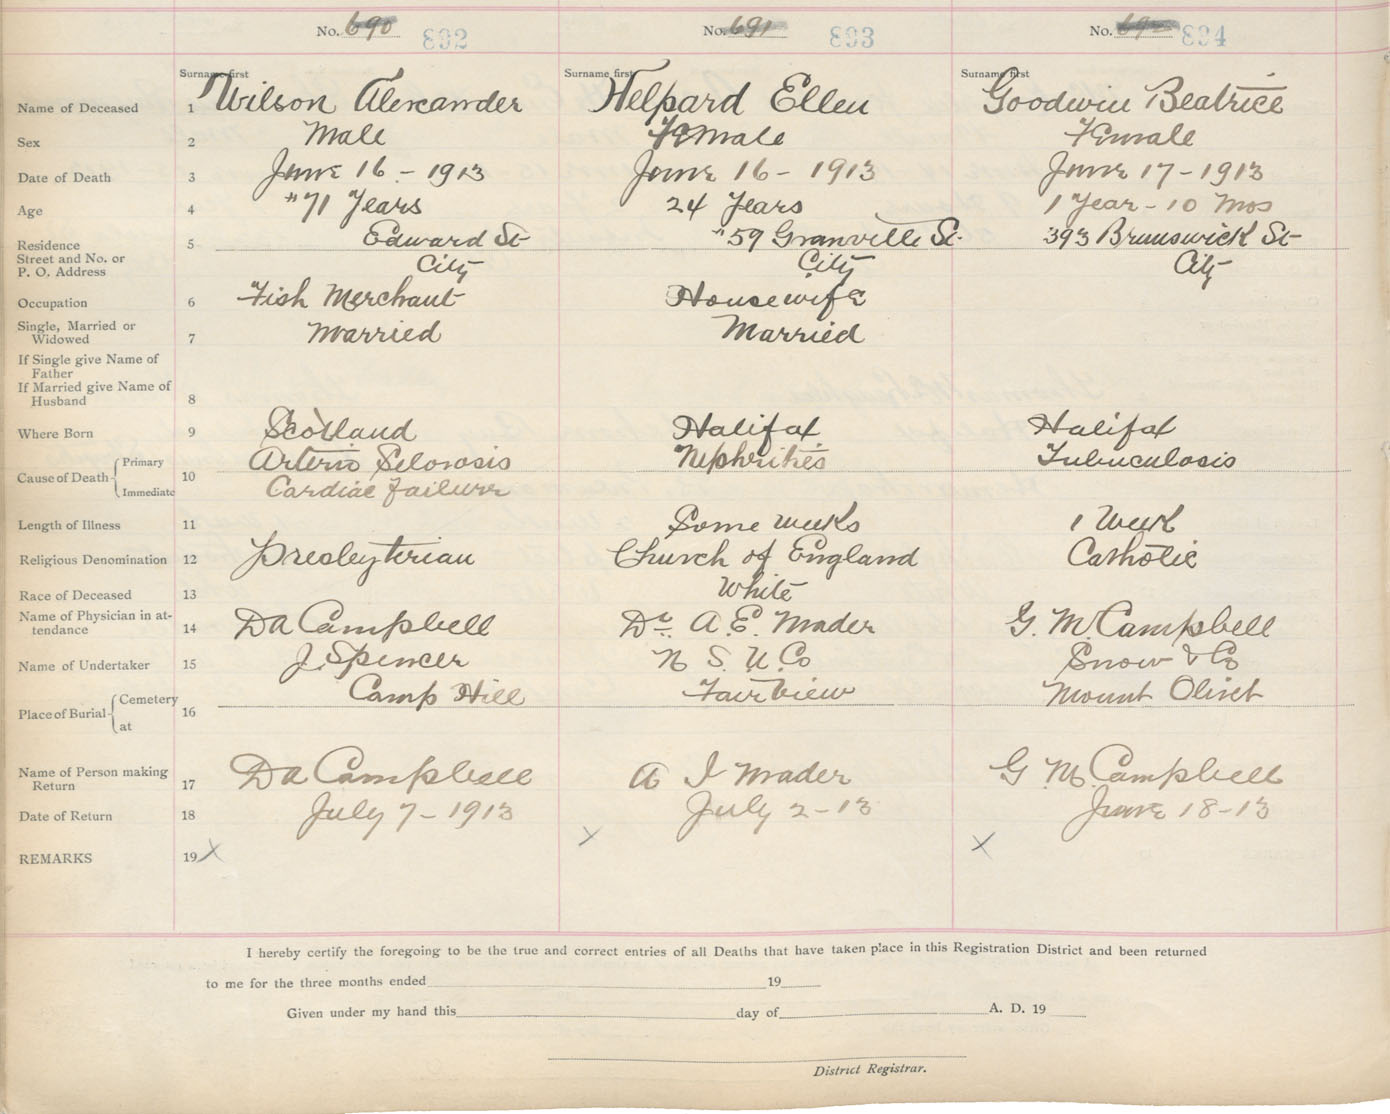 No. 690 892 No. 691 893 No. 692 894
Surname first Surname first Surname first
Name of Deceased 1 Wilson Alexander Helpard Ellen Goodwin Beatrice
Sex 2 Male Female Female
Date of Death 3 June 16 - 1913 June 16 - 1913 June 17 - 1913
Age 4 "71 Years 24 Years 1 Year - 10 Mos
Residence 5 Edward St "59 Granville St. 393 Brunswick St
Street and No. or
P. O. Address City City City
Occupation 6 Fish Merchant Housewife
Single, Married or
Widowed 7 Married Married
If Single give Name of
Father
If Married give Name of
Husband 8
Where Born 9 Scotland Halifax Halifax
Cause of Death Primary 10 Arterio Sclorosis Nephrities Tubuculosis
Immediate Cardiac failure
Length of Illness 11 Some weeks 1 Week
Religious Denomination 12 Presbyterian Church of England Catholic
Race of Deceased 13 White
Name of Physician in at-
tendance 14 Da Campbell Dr. A. E. Mader G. M. Campbell
Name of Undertaker 15 J. Spencer N S. U. Co Snow & Co
Place of Burial Cemetery 16 Camp Hill Fairview Mount Olivet
at
Name of Person making
Return 17 Da Campbell A I Mader G M. Campbell
Date of Return 18 July 7 - 1913 July 2 - 13 June 18 - 13
REMARKS 19 X X X
I hereby certify the foregoing to be the true and correct entries of all Deaths that have taken place in this Registration District and been returned
to me for the three months ended 19
Given under my hand this day of A. D. 19
District Registrar.